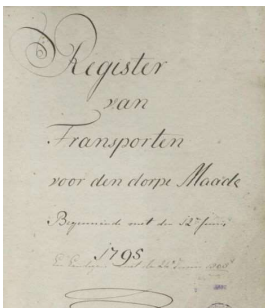 Register
van
Transporten
voor den dorpe Maarde
Beginnende met den 12
1795